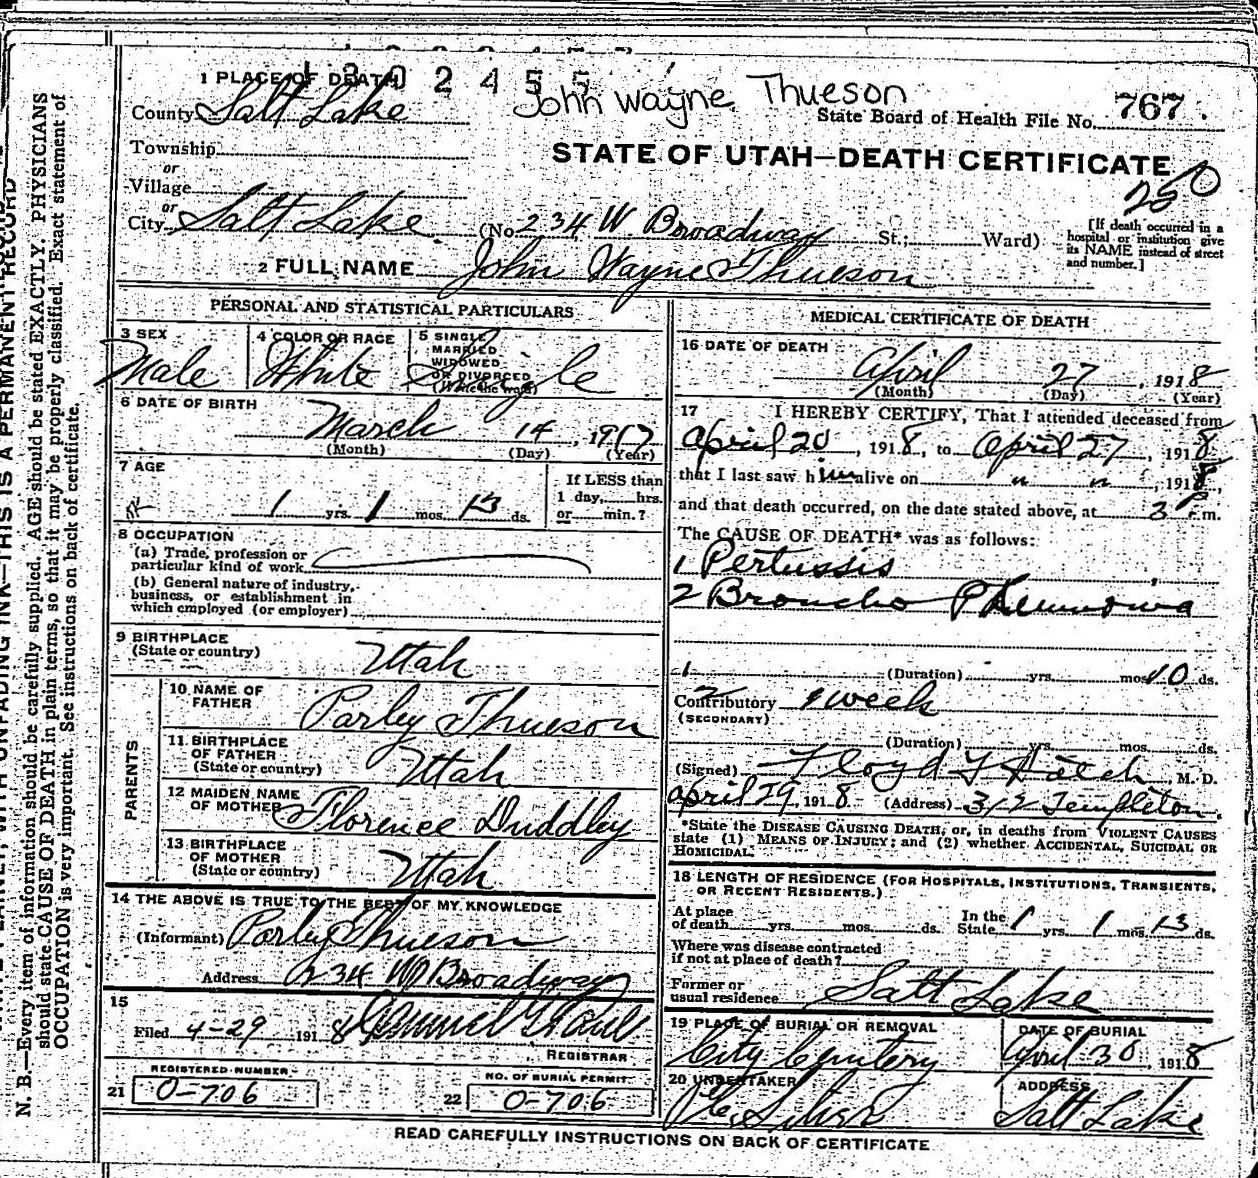 1302455
1 PLACE OF DEATH
John Wayne Thueson
County Salt Lake
State Board of Health File No. 767.
Township
STATE OF UTAH—DEATH CERTIFICATE
or
Village
250
or
City Salt Lake (No 234 W Broadway St.; Ward)
[If death occurred in a
hospital or institution give
its NAME instead of street
and number.]
2 FULL NAME John Wayne Thueson
PERSONAL AND STATISTICAL PARTICULARS
3 SEX
Male
4 COLOR OR RACE
White
5 SINGLE
MARRIED
WIDOWED
OR DIVORCED
(Write the word)
Single
6 DATE OF BIRTH
March 14, 1917
(Month) (Day) (Year)
7 AGE
1 yrs. 1 mos. 13 ds.
If LESS than
1 day, hrs.
or min.?
8 OCCUPATION
(a) Trade, profession or
particular kind of work
(b) General nature of industry,
business, or establishment in
which employed (or employer)
9 BIRTHPLACE
(State or country)
Utah
PARENTS
10 NAME OF
FATHER
Parley Thueson
11 BIRTHPLACE
OF FATHER
(State or country)
Utah
12 MAIDEN NAME
OF MOTHER
Florence Duddley
13 BIRTHPLACE
OF MOTHER
(State or country)
Utah
14 THE ABOVE IS TRUE TO THE BEST OF MY KNOWLEDGE
(Informant) Parley Thueson
Address 234 W Broadway
15
Filed 4-29 1918
REGISTRAR
REGISTERED NUMBER
21 0-706
NO. OF BURIAL PERMIT
22 0-706
MEDICAL CERTIFICATE OF DEATH
16 DATE OF DEATH
April 27, 1918
(Month) (Day) (Year)
17 I HEREBY CERTIFY, That I attended deceased from
April 20, 1918, to April 27, 1918
that I last saw him alive on " ", 1918,
and that death occurred, on the date stated above, at 3 m.
The CAUSE OF DEATH* was as follows:
1 Pertussis
2 Broncho Pneumonia
1 (Duration) yrs. mos. 10 ds.
2
Contributory 1 week
(SECONDARY)
(Duration) yrs. mos. ds.
(Signed) Floyd Hatch, M. D.
April 29, 1918 (Address) 312 Templeton.
*State the DISEASE CAUSING DEATH, or, in deaths from VIOLENT CAUSES
state (1) MEANS OF INJURY; and (2) whether ACCIDENTAL, SUICIDAL OR
HOMICIDAL.
18 LENGTH OF RESIDENCE (FOR HOSPITALS, INSTITUTIONS, TRANSIENTS,
OR RECENT RESIDENTS.)
At place
of death yrs. mos. ds.
In the
State 1 yrs. 1 mos. 13 ds.
Where was disease contracted
if not at place of death?
Former or
usual residence Salt Lake
19 PLACE OF BURIAL OR REMOVAL
City Cemitery
DATE OF BURIAL
April 30 1918
20 UNDERTAKER
ADDRESS
Salt Lake
READ CAREFULLY INSTRUCTIONS ON BACK OF CERTIFICATE
WITH UNFADING INK—THIS IS A PERMANENT RECORD
N. B.—Every item of information should be carefully supplied. AGE should be stated EXACTLY. PHYSICIANS
should state CAUSE OF DEATH in plain terms, so that it may be properly classified. Exact statement of
OCCUPATION is very important. See instructions on back of certificate.